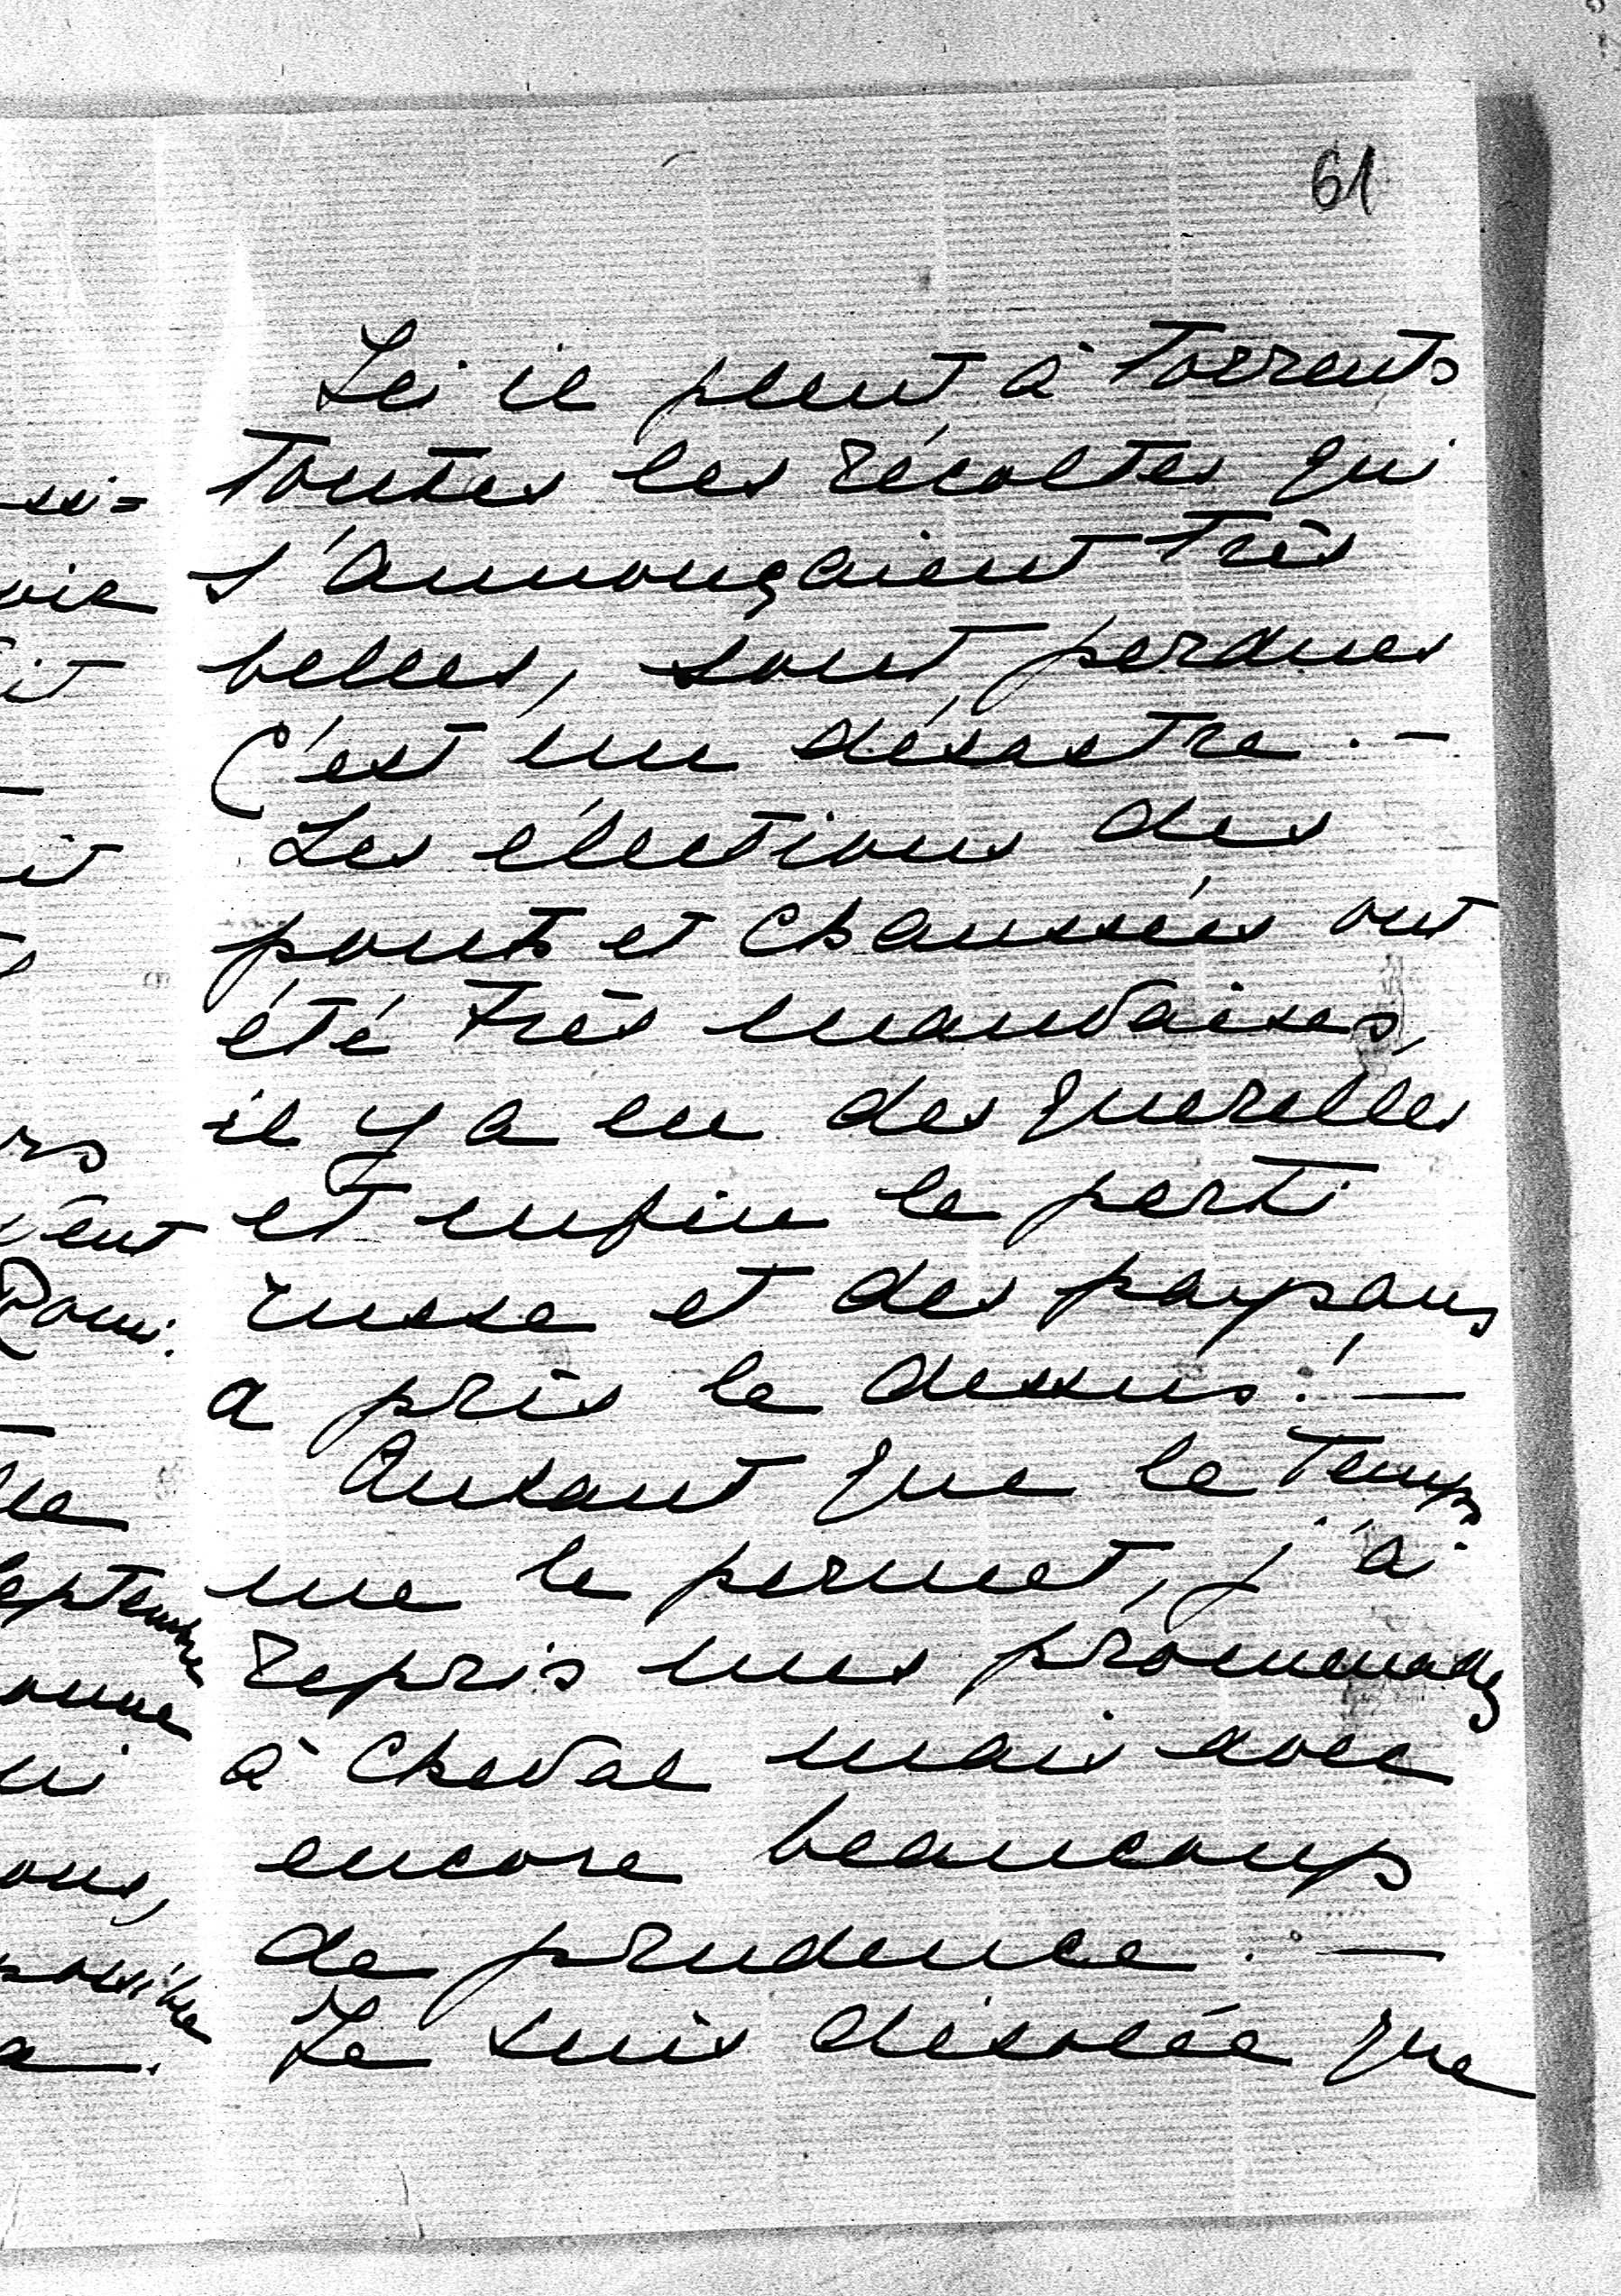 61
Ici il pleut à torrents
toutes les récoltes qui
s'annonçaient très
belles, sont perdues
C'est un désastre. —
Les élections des
ponts et chaussées ont
été très mauvaises,
il y a eu des querelles
et enfin le parti
russe et des paysans
a pris le dessus! —
Autant que le temps
me le permet, j'ai
repris mes promenades
à cheval mais avec
encore beaucoup
de prudence. —
Je suis désolée que